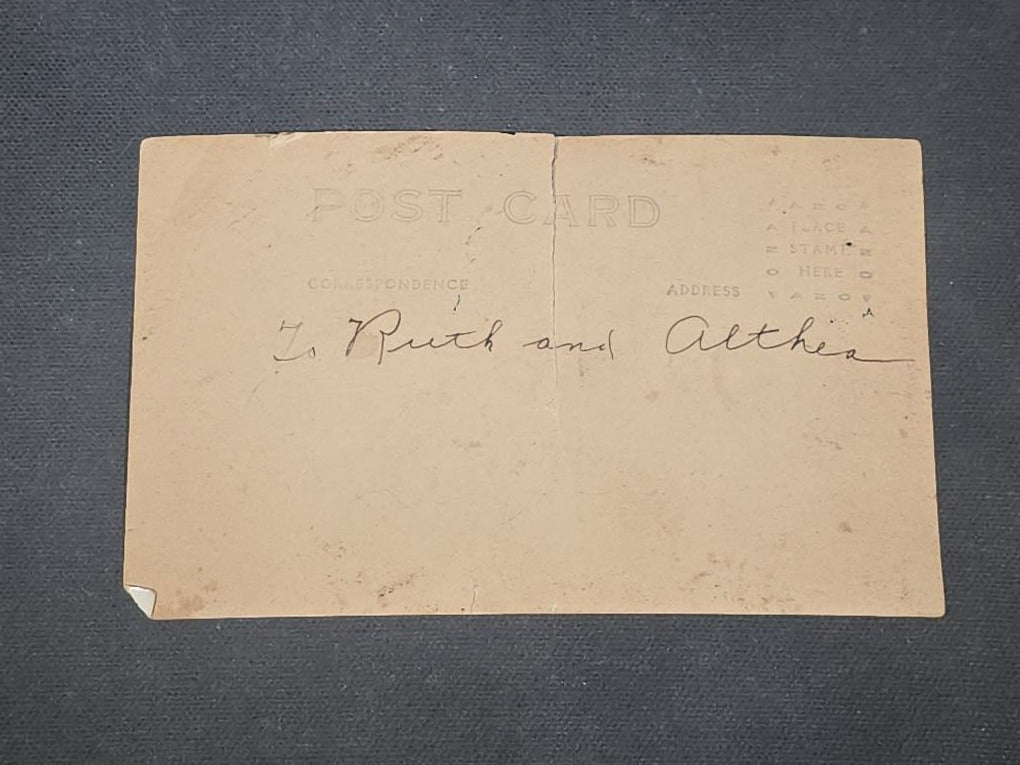 POST CARD
CORRESPONDENCE
ADDRESS
PLACE
STAMP
HERE
To Ruth and Althea